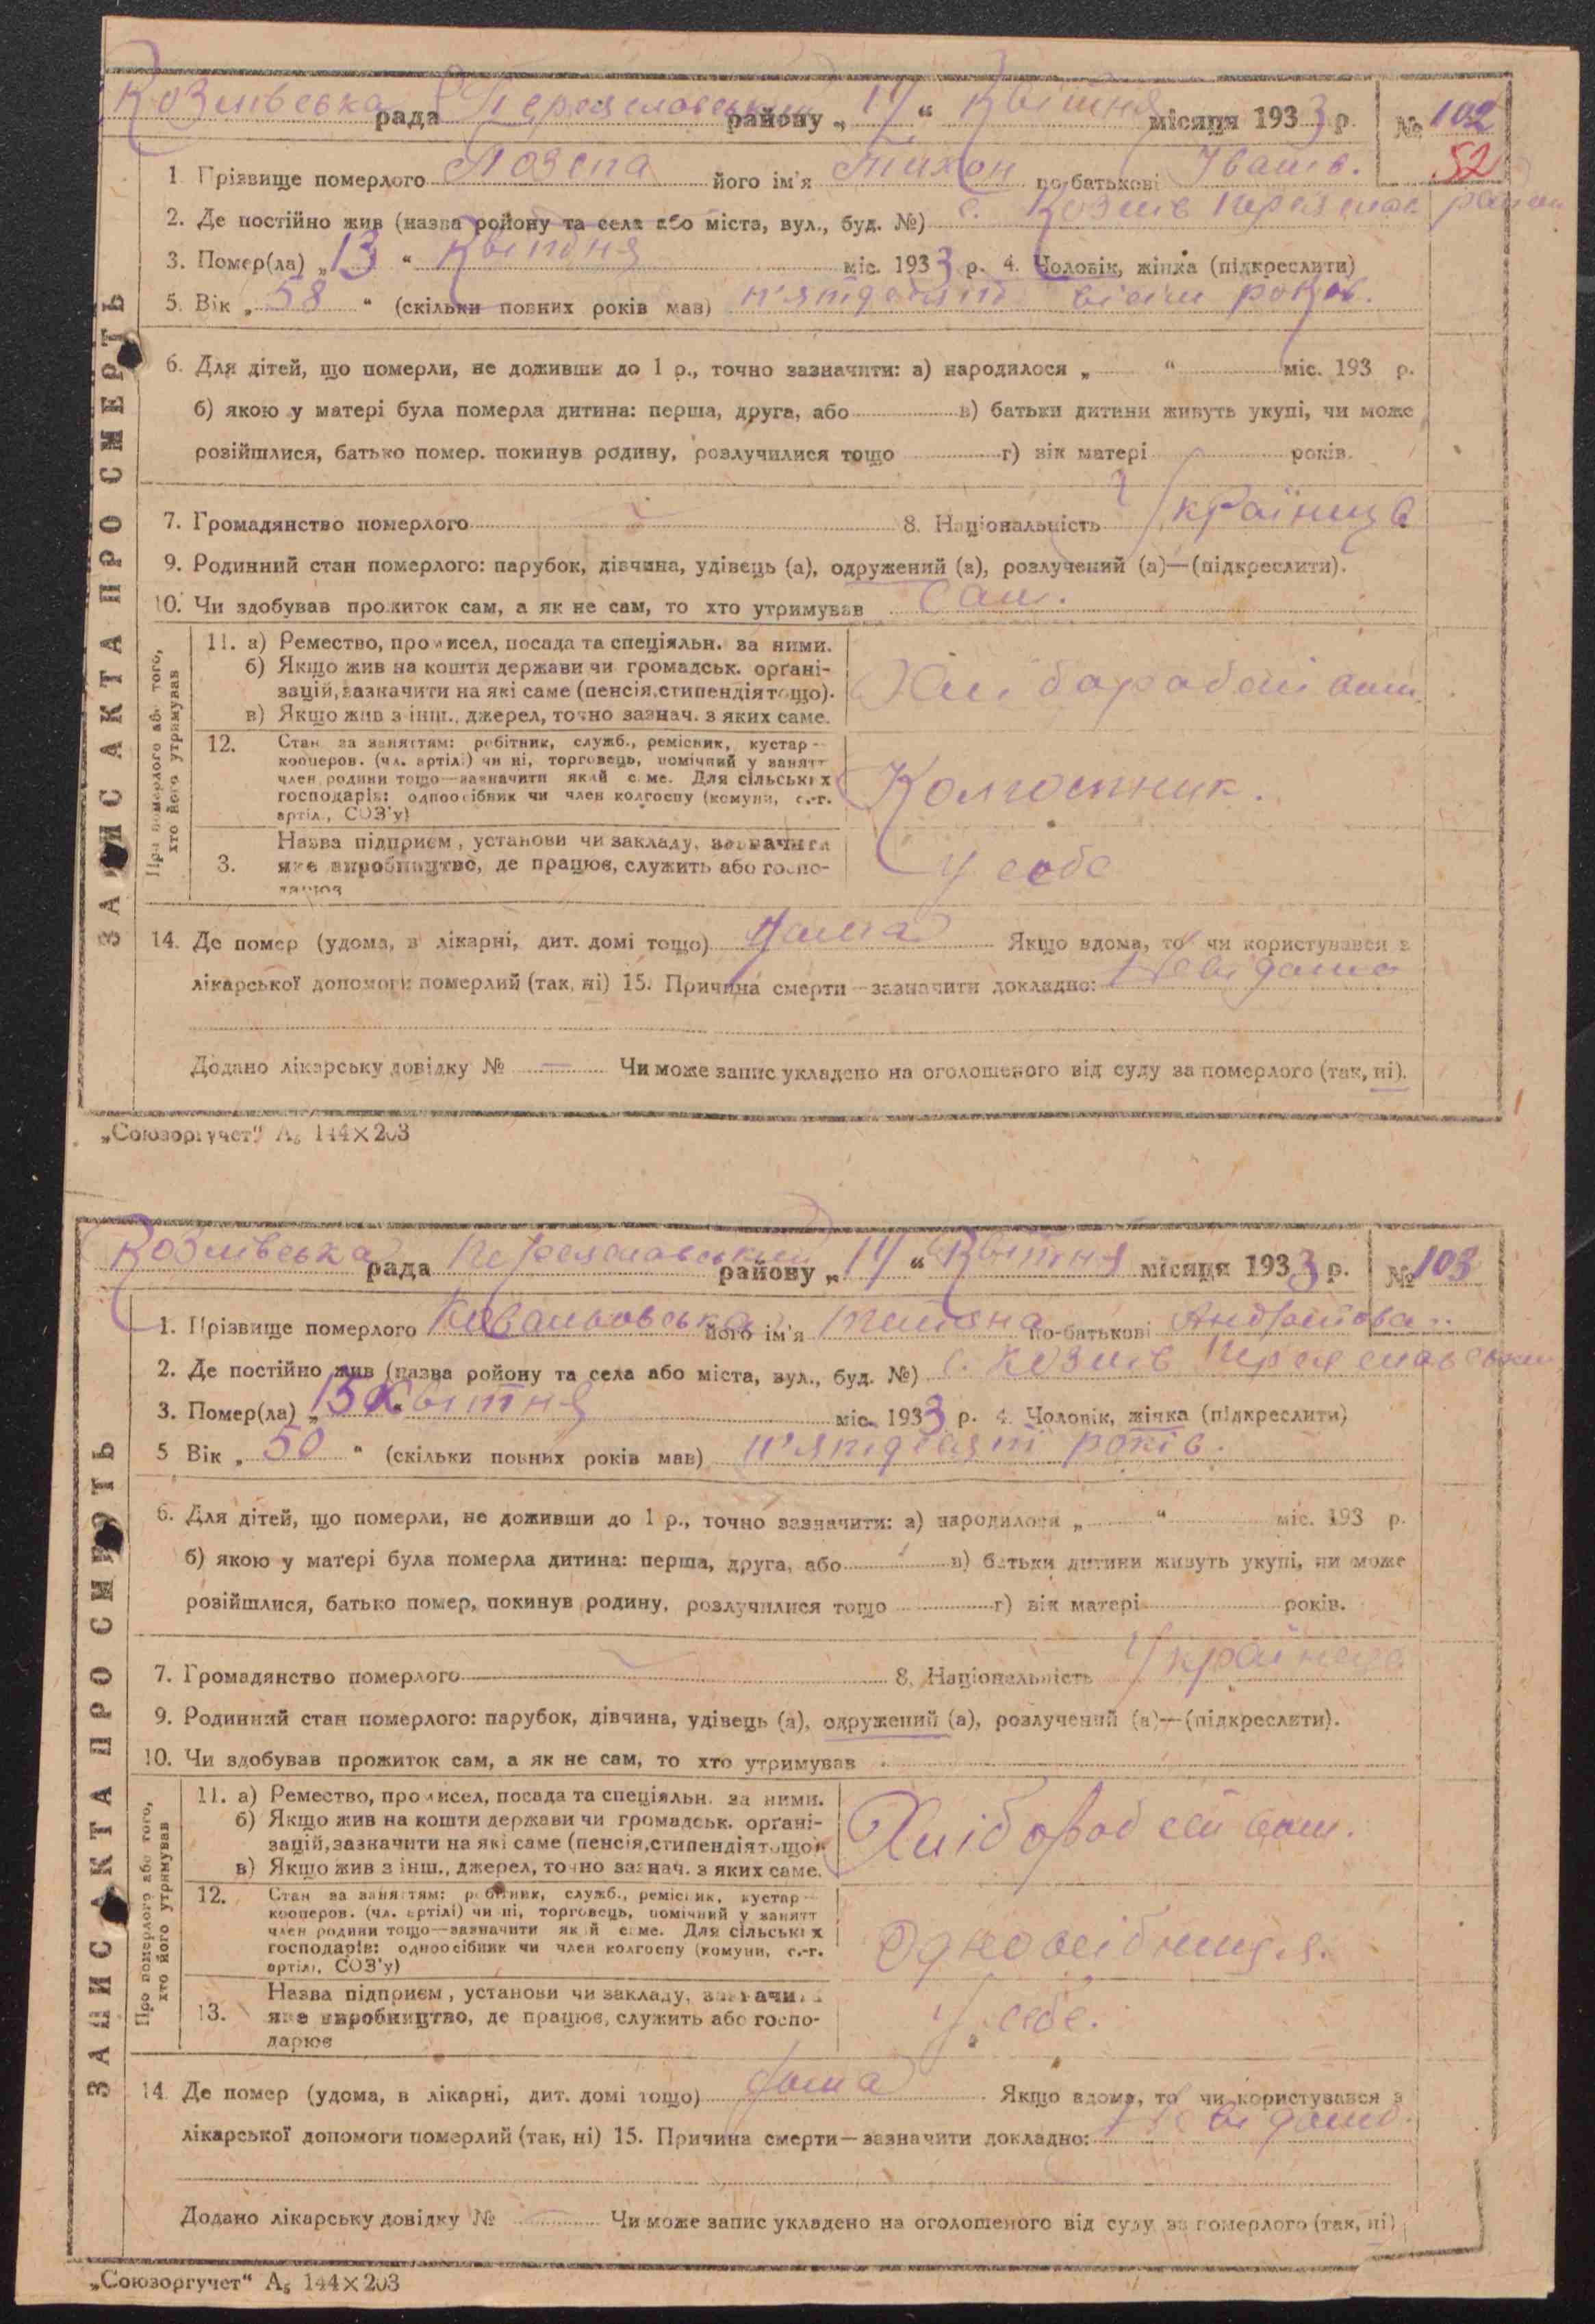 Козлівська рада Переяславський району „14“ Квітня місяця 1933 р. № 102
52
1 Прізвище померлого його ім'я Тихон по-батькові Іванів.
2. Де постійно жив (назва ройону та села або міста, вул., буд. №) с. Козлів Переяслав район
3. Помер(ла) „13“ Квітня міс. 1933 р. 4. Чоловік, жінка (підкреслити)
5. Вік „58“ (скільки повних років мав) п'ятдесят вісім років.
6. Для дітей, що померли, не доживши до 1 р., точно зазначити: а) народилося „ “ міс. 193 р.
б) якою у матері була померла дитина: перша, друга, або в) батьки дитини живуть укупі, чи може
розійшлися, батько помер. покинув родину, розлучилися тощо г) вік матері років.
7. Громадянство померлого 8. Національність Українців
9. Родинний стан померлого: парубок, дівчина, удівець (а), одружений (а), розлучений (а)—(підкреслити).
10. Чи здобував прожиток сам, а як не сам, то хто утримував Сам.
ЗАПИС АКТА ПРО СМЕРТЬ
Про померлого або того,
хто його утримував
11. а) Ремество, промисел, посада та спеціяльн. за ними.
б) Якщо жив на кошти держави чи громадськ. орґані-
зацій, зазначити на які саме (пенсія, стипендія тощо).
в) Якщо жив з інш., джерел, точно зазнач. з яких саме.
12. Стан за заняттям: робітник, служб., ремісник, кустар—
кооперов. (чл. артілі) чи ні, торговець, помічний у занятт
член родини тощо—зазначити який саме. Для сільських
господарів: одноосібник чи член колгоспу (комуни, с.-г.
артіл., СОЗ'у)
Колгоспник.
Назва підприєм, установи чи закладу, зазначити
3. яке виробництво, де працює, служить або госпо-
дарює
У себе
14. Де помер (удома, в лікарні, дит. домі тощо) Дома Якщо вдома, то чи користувався з
лікарської допомоги померлий (так, ні) 15. Причина смерти—зазначити докладно: Невідомо
Додано лікарську довідку № — Чи може запис укладено на оголошеного від суду за померлого (так, ні).
„Союзоргучет“ А₅ 144×203
Козлівська рада Переяславський району „14“ Квітня місяця 1933 р. № 103
1. Прізвище померлого Ковальовська його ім'я Тетяна по-батькові Андріївна..
2. Де постійно жив (назва ройону та села або міста, вул., буд. №) с. Козлів Переяславський
3. Помер(ла) „13“ Квітня міс. 1933 р. 4. Чоловік, жінка (підкреслити)
5 Вік „50“ (скільки повних років мав) п'ятдесят років.
6. Для дітей, що померли, не доживши до 1 р., точно зазначити: а) народилося „ “ міс. 193 р.
б) якою у матері була померла дитина: перша, друга, або в) батьки дитини живуть укупі, чи може
розійшлися, батько помер, покинув родину, розлучилися тощо г) вік матері років.
7. Громадянство померлого 8. Національність
9. Родинний стан померлого: парубок, дівчина, удівець (а), одружений (а), розлучений (а)—(підкреслити).
10. Чи здобував прожиток сам, а як не сам, то хто утримував
ЗАПИС АКТА ПРО СМЕРТЬ
Про померлого або того,
хто його утримував
11. а) Ремество, промисел, посада та спеціяльн. за ними.
б) Якщо жив на кошти держави чи громадськ. орґані-
зацій, зазначити на які саме (пенсія, стипендія тощо)
в) Якщо жив з інш., джерел, точно зазнач. з яких саме.
12. Стан за заняттям: робітник, служб., ремісник, кустар—
кооперов. (чл. артілі) чи ні, торговець, помічний у занятт
член родини тощо—зазначити який саме. Для сільських
господарів: одноосібник чи член колгоспу (комуни, с.-г.
артілі, СОЗ'у)
Одноосібниця.
Назва підприєм, установи чи закладу, зазначити
13. яке виробництво, де працює, служить або госпо-
дарює
У себе.
14. Де помер (удома, в лікарні, дит. домі тощо) Дома Якщо вдома, то чи користувався з
лікарської допомоги померлий (так, ні) 15. Причина смерти—зазначити докладно: Невідомо.
Додано лікарську довідку № — Чи може запис укладено на оголошеного від суду за померлого (так, ні)
„Союзоргучет“ А₅ 144×203